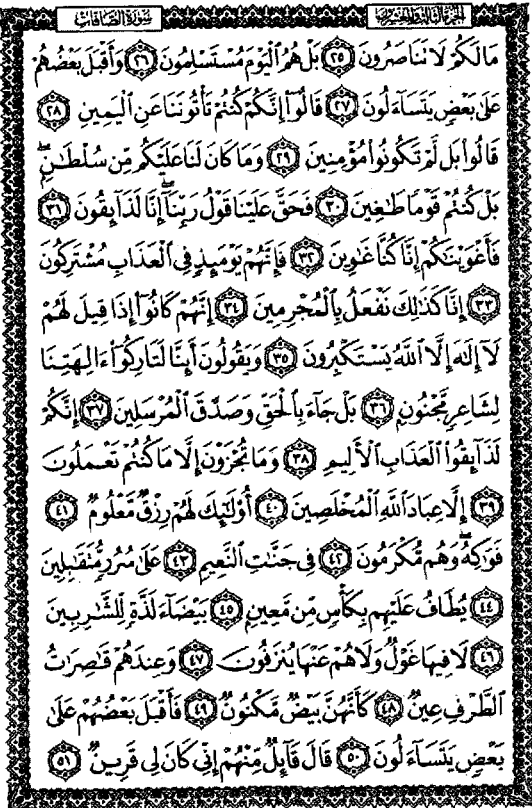 الجزء الثالث والعشرين سورة الصافات
مَا لَكُمْ لَا تَنَاصَرُونَ ﴿٢٥﴾ بَلْ هُمُ الْيَوْمَ مُسْتَسْلِمُونَ ﴿٢٦﴾ وَأَقْبَلَ بَعْضُهُمْ
عَلَىٰ بَعْضٍ يَتَسَاءَلُونَ ﴿٢٧﴾ قَالُوا إِنَّكُمْ كُنتُمْ تَأْتُونَنَا عَنِ الْيَمِينِ ﴿٢٨﴾
قَالُوا بَل لَّمْ تَكُونُوا مُؤْمِنِينَ ﴿٢٩﴾ وَمَا كَانَ لَنَا عَلَيْكُم مِّن سُلْطَٰنٍ ۖ
بَلْ كُنتُمْ قَوْمًا طَٰغِينَ ﴿٣٠﴾ فَحَقَّ عَلَيْنَا قَوْلُ رَبِّنَا ۖ إِنَّا لَذَائِقُونَ ﴿٣١﴾
فَأَغْوَيْنَٰكُمْ إِنَّا كُنَّا غَٰوِينَ ﴿٣٢﴾ فَإِنَّهُمْ يَوْمَئِذٍ فِي الْعَذَابِ مُشْتَرِكُونَ
﴿٣٣﴾ إِنَّا كَذَٰلِكَ نَفْعَلُ بِالْمُجْرِمِينَ ﴿٣٤﴾ إِنَّهُمْ كَانُوا إِذَا قِيلَ لَهُمْ
لَا إِلَٰهَ إِلَّا اللَّهُ يَسْتَكْبِرُونَ ﴿٣٥﴾ وَيَقُولُونَ أَئِنَّا لَتَارِكُوا ءَالِهَتِنَا
لِشَاعِرٍ مَّجْنُونٍ ﴿٣٦﴾ بَلْ جَاءَ بِالْحَقِّ وَصَدَّقَ الْمُرْسَلِينَ ﴿٣٧﴾ إِنَّكُمْ
لَذَائِقُوا الْعَذَابِ الْأَلِيمِ ﴿٣٨﴾ وَمَا تُجْزَوْنَ إِلَّا مَا كُنتُمْ تَعْمَلُونَ
﴿٣٩﴾ إِلَّا عِبَادَ اللَّهِ الْمُخْلَصِينَ ﴿٤٠﴾ أُولَٰئِكَ لَهُمْ رِزْقٌ مَّعْلُومٌ ﴿٤١﴾
فَوَاكِهُ ۖ وَهُم مُّكْرَمُونَ ﴿٤٢﴾ فِي جَنَّٰتِ النَّعِيمِ ﴿٤٣﴾ عَلَىٰ سُرُرٍ مُّتَقَٰبِلِينَ
﴿٤٤﴾ يُطَافُ عَلَيْهِم بِكَأْسٍ مِّن مَّعِينٍ ﴿٤٥﴾ بَيْضَاءَ لَذَّةٍ لِّلشَّٰرِبِينَ
﴿٤٦﴾ لَا فِيهَا غَوْلٌ وَلَا هُمْ عَنْهَا يُنزَفُونَ ﴿٤٧﴾ وَعِندَهُمْ قَٰصِرَٰتُ
الطَّرْفِ عِينٌ ﴿٤٨﴾ كَأَنَّهُنَّ بَيْضٌ مَّكْنُونٌ ﴿٤٩﴾ فَأَقْبَلَ بَعْضُهُمْ عَلَىٰ
بَعْضٍ يَتَسَاءَلُونَ ﴿٥٠﴾ قَالَ قَائِلٌ مِّنْهُمْ إِنِّي كَانَ لِي قَرِينٌ ﴿٥١﴾